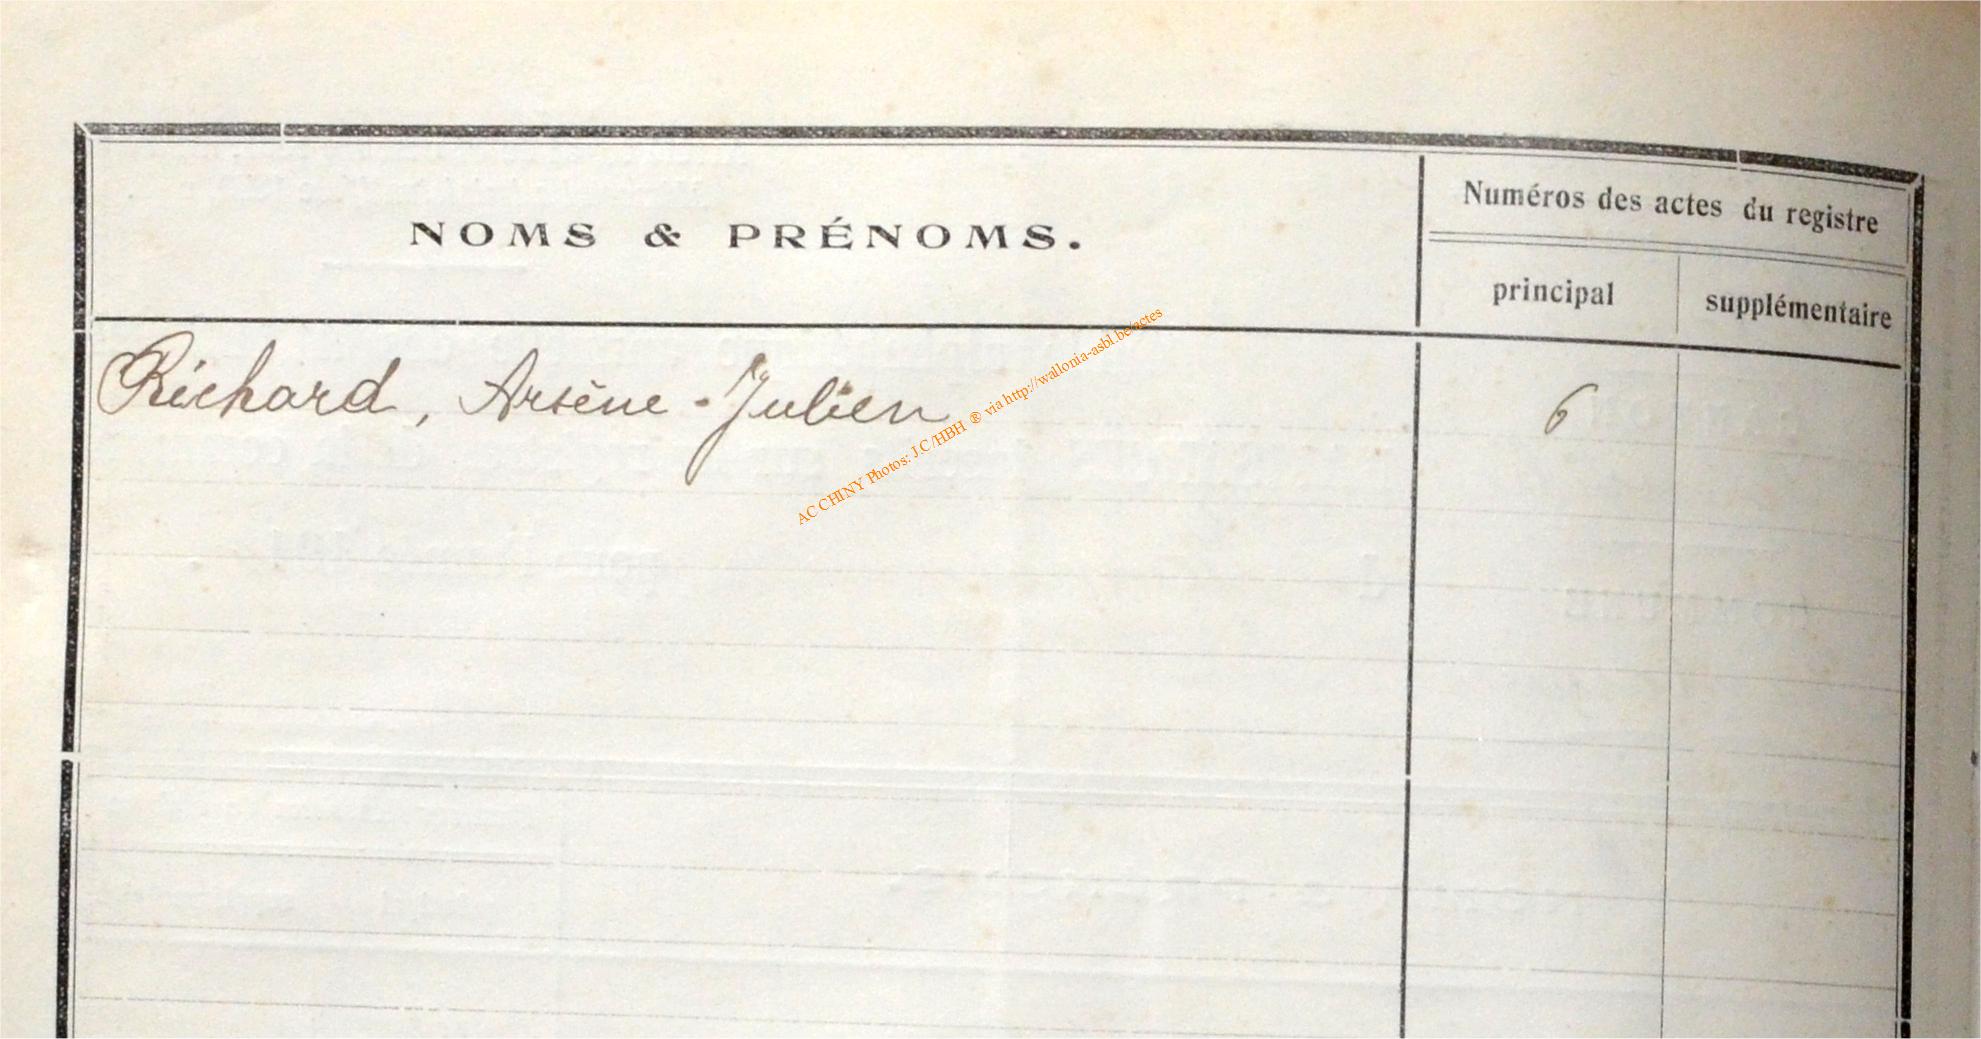 Numéros des actes du registre
NOMS & PRÉNOMS.
principal
supplémentaire
Richard, Arsène-Julien
6
AC CHINY Photos: J.C/HBH ® via http://wallonia-asbl.be/actes